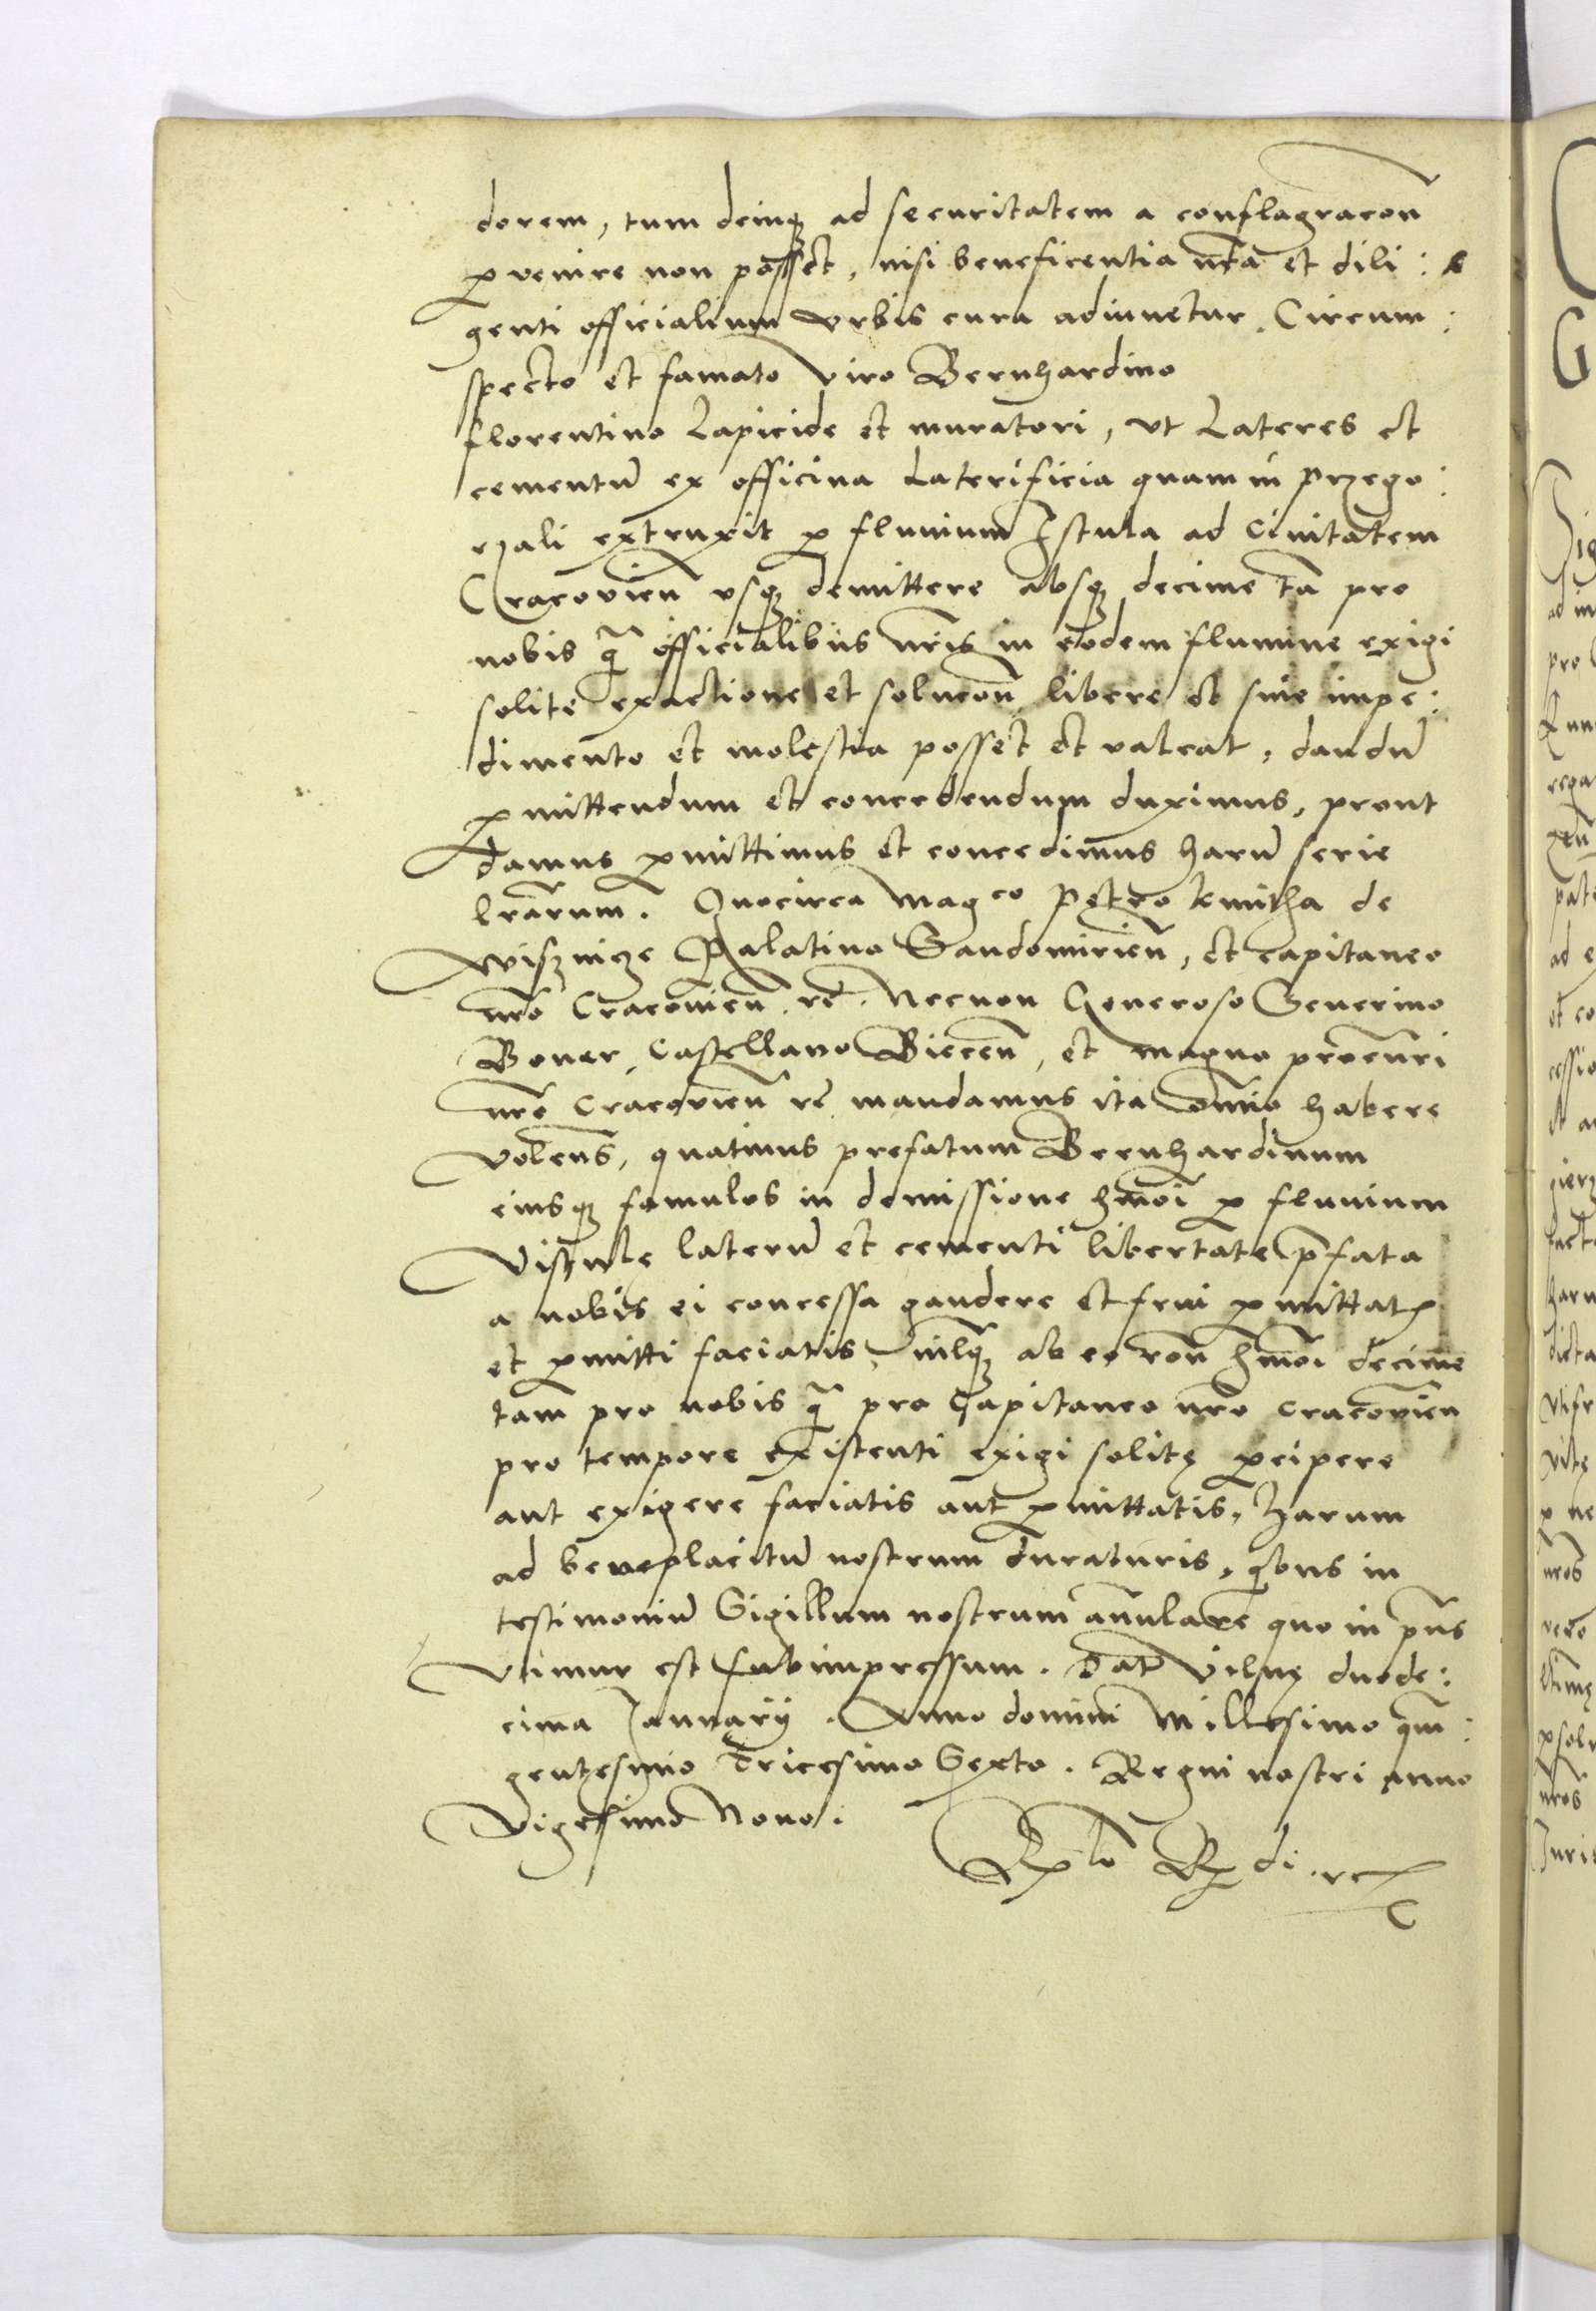 dorem, tum deinq̃ ad securitatem a conflagracon̄
ꝑvenire non posset, nisi beneficentia nr̄a et dili:
genti officialium vrbis cura adiuuetur. Circum:
specto et famato viro Bernhardino
florentino Lapicide et muratori, vt Lateres et
cementū ex officina Laterificia quam in Przego:
rzali extruxit ꝑ fluuium Istula ad Ciuitatem
Cracovien̄ vsq̃ demittere absq̃ decime tā pro
nobis q̄ officialibus nr̄is in eodem flumine exigi
solite exactione et solucon̄ libere et sine impe:
dimento et molestia posset et valeat, dandū
ꝑmittendum et concedendum duximus, prout
damus ꝑmittimus et concedimus harū serie
lrārum. Quocirca Magco Petro kmitha de
wisznicze Palatino Sandomirien̄, et capitaneo
nrō Cracouien̄ rē. Necnon Generoso Seuerino
Boner, Castellano Biecen̄, et magno procur̄i
nrō Cracouien̄ rē mandamus ita om̄io habere
volens̄, quatinus prefatum Bernhardinum
eiusq̃ famulos in demissione hm̄oi ꝑ fluuium
Vistule laterū et cementi libertate p̄fata
a nobis ei concessa gaudere et frui ꝑmittatis
et ꝑmitti faciatis, nilq̃ ab eo ron̄ hm̄oi decime
tam pro nobis q̄ pro Capitaneo nrō cracovien̄
pro tempore existenti exigi solitę ꝑcipere
aut exigere faciatis aut ꝑmittatis, harum
ad beneplacitū nostrum duraturis, q̄bus in
testimoniū Sigillum nostrum annulare quo in pn̄s
vtimur est subimpressum. Dat̄ vilnę duode:
cima January. Anno domini Millesimo qui̅n:
gentesimo Tricesimo Sexto. Regni nostri anno
Vigesimo Nono.
ad
pro
rega
pate
ad e
et co
cessio
dicta
vitę
nros̄
vero
nros̄
Juris